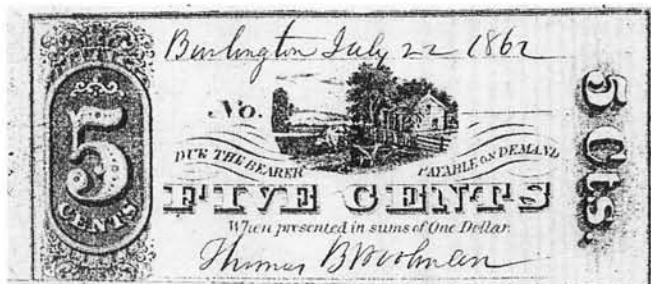 Burlington July 22 1862
5
CENTS
No.
DUE THE BEARER
PAYABLE ON DEMAND
FIVE CENTS
When presented in sums of One Dollar.
Thomas B Woolman
5 Cts.